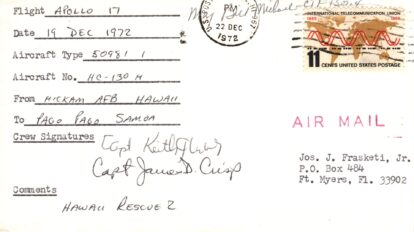 Flight APOLLO 17
Date 19 DEC 1972
Aircraft Type 50981 1
Aircraft No. HC-130 H
From HICKAM AFB HAWAII
To PAGO PAGO SAMOA
Crew Signatures
Capt Keith
Capt James D. Crisp
Comments
HAWAII RESCUE 2
PM
22 DEC
1972
INTERNATIONAL TELECOMMUNICATION UNION
1865 1965
11 CENTS UNITED STATES POSTAGE
AIR MAIL
Jos. J. Frasketi, Jr.
P.O. Box 484
Ft. Myers, Fl. 33902